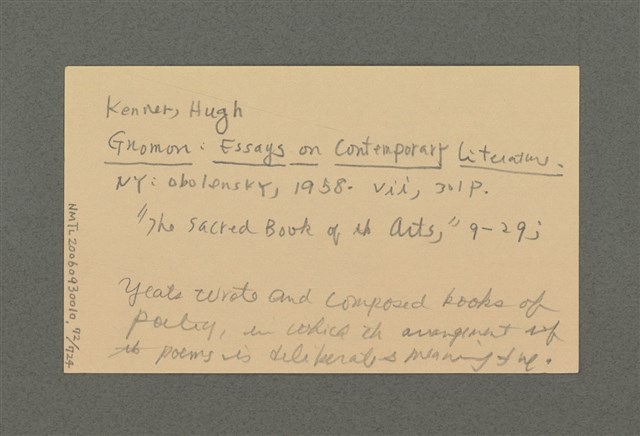 Kenner, Hugh
Gnomon: Essays on Contemporary Literature.
NY: Obolensky, 1958. vii, 301P.
"The Sacred Book of th Arts," 9-29;
Yeats wrote and composed books of
poetry, in which th arrangement of
th poems is deliberate & meaningful.
NMTL20060930010, 92/924